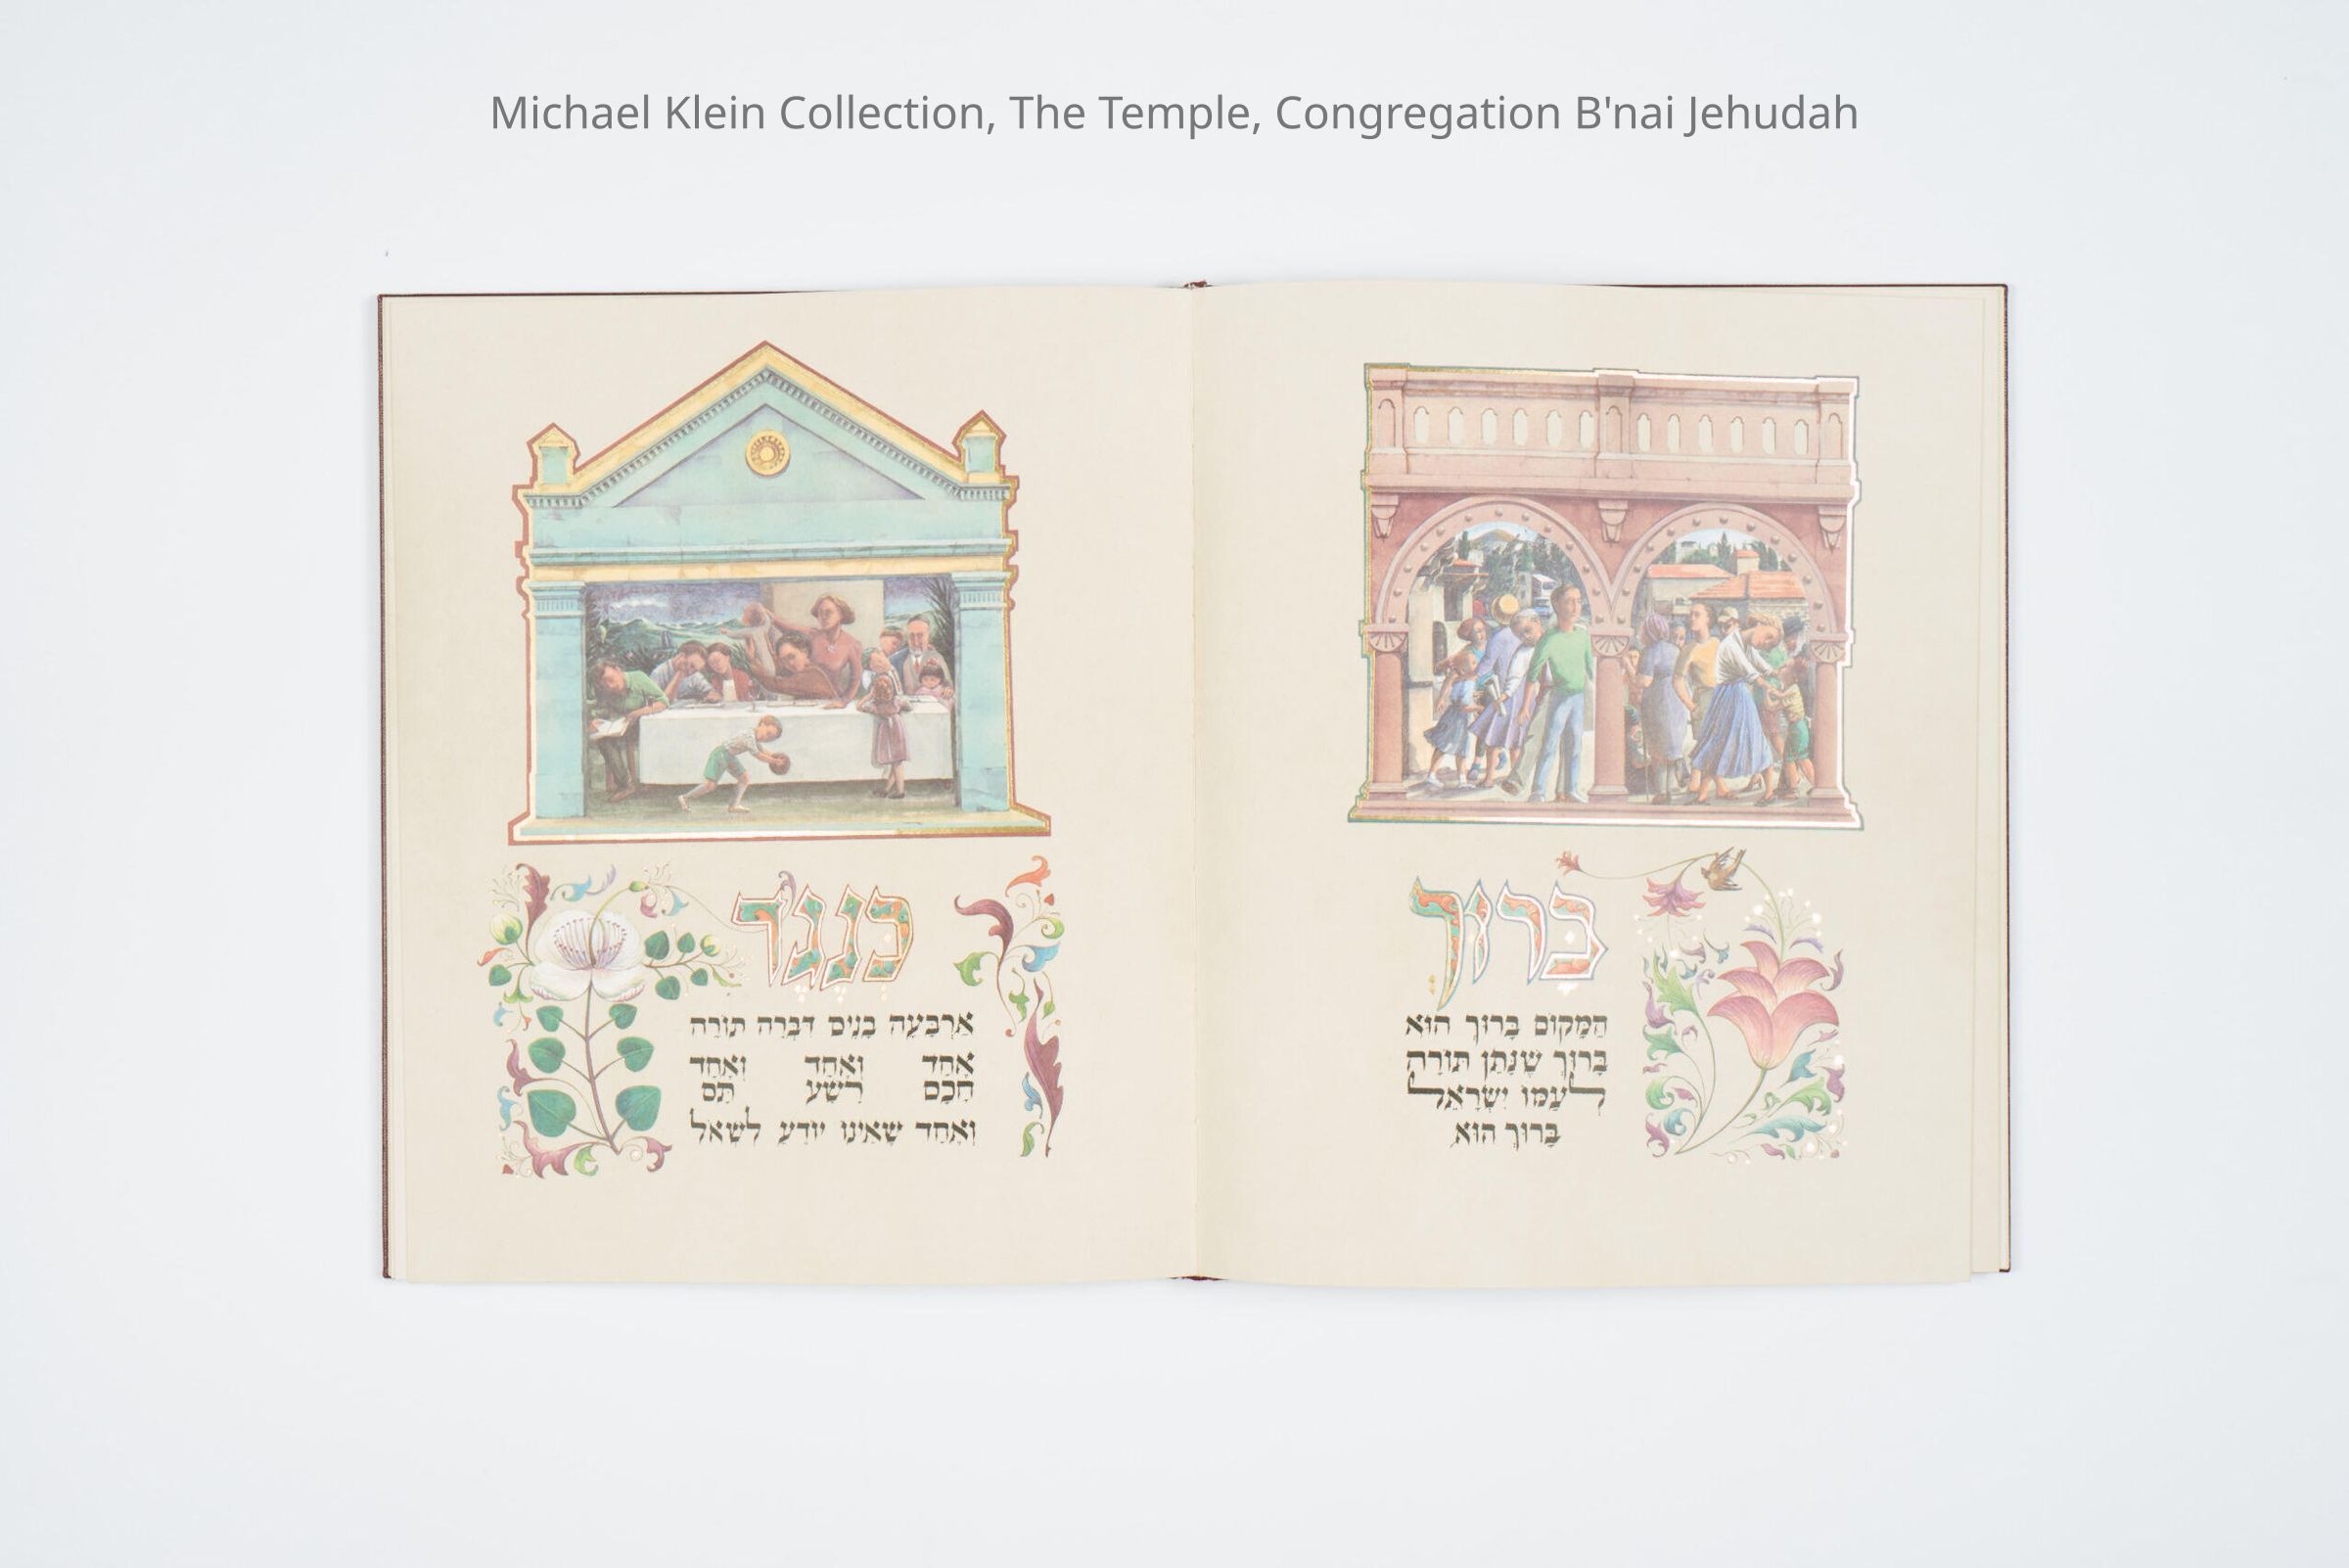 Michael Klein Collection, The Temple, Congregation B'nai Jehudah
בָּרוּךְ
הַמָּקוֹם בָּרוּךְ הוּא
בָּרוּךְ שֶׁנָּתַן תּוֹרָה
לְעַמּוֹ יִשְׂרָאֵל
בָּרוּךְ הוּא
כְּנֶגֶד
אַרְבָּעָה בָנִים דִּבְּרָה תוֹרָה
אֶחָד וְאֶחָד וְאֶחָד
חָכָם רָשָׁע תָּם
וְאֶחָד שֶׁאֵינוֹ יוֹדֵעַ לִשְׁאֹל